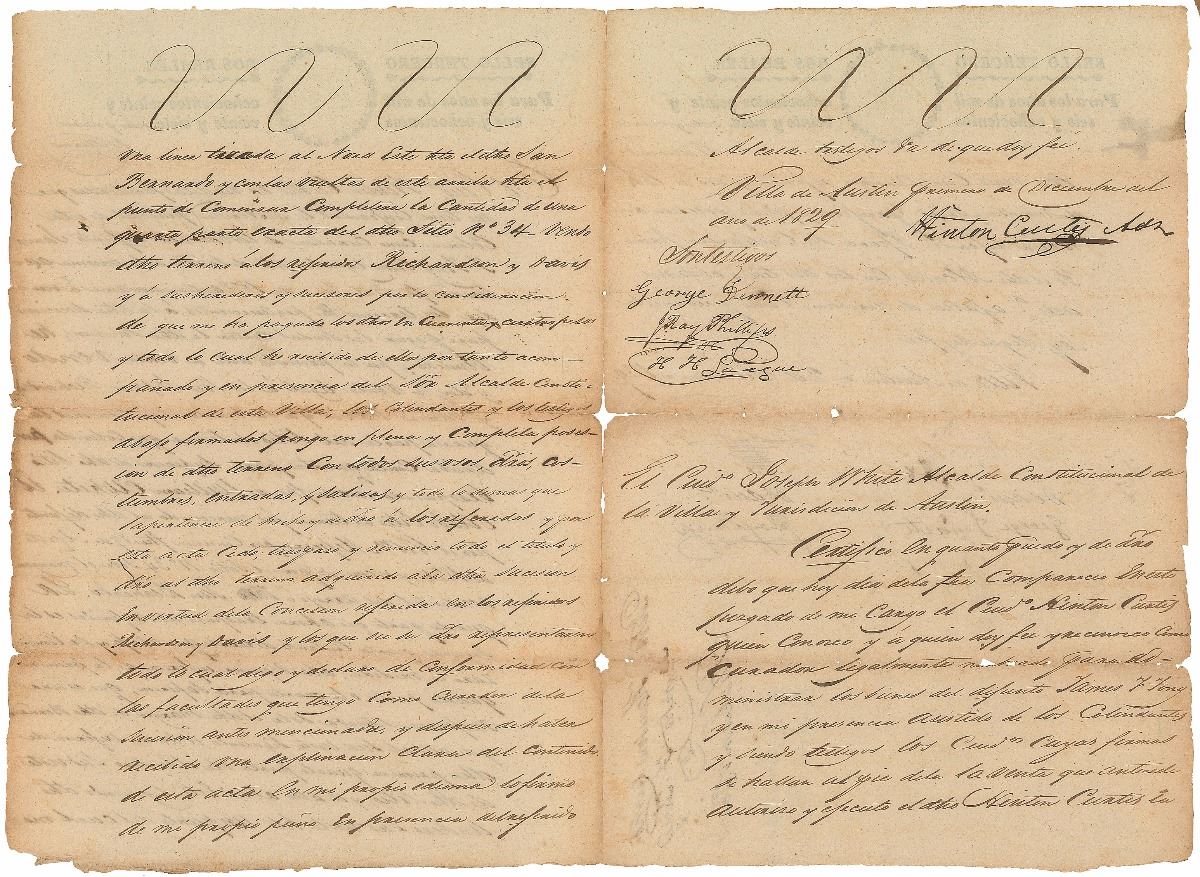 una linea tirada al Nord Este hta el dho San
Bernardo y con las vueltas de este arriba hta el
punto de Comensar Completere la Cantidad de una
quarta parte exacta del dho Sitio Nº 34. Vendo
dho terreno á los referidos Rechardson y Davis
y á sus herederos y sucesores por la consideracion
de que me ha pagado los dhos en Cuarenta y cuatro pesos
y todo lo cual he recibido de ellos por tanto acom-
pañado y en presencia del Sõr Alcalde Consti-
tucional de esta Villa, los Colindantes y los testigos
abajo firmados pongo en plena y Completa poses-
ion de dho terreno Con todos sus usos, dros, cos-
tumbres, entradas, y salidas y todo lo demas que
de dro á los referidos y por
esta acta Cedo, traspaso y renuncio todo el titulo y
dro al dho terreno adquirido a la dha sucesion
En virtud de la Concesion referida en los referidos
Rechardson y Davis y los que sus dros representaren
todo lo cual digo y declaro de Conformidad con
las facultades que tengo Como Curador de la
sucesion antes mencionada, y despues de haber
recibido una esplinacion Clara del contenido
de esta acta en mi propio idioma lo firmo
de mi propio puño En presencia del referido
Alcalde testigos de que doy fee.
Villa de Austin primero de Diciembre del
año de 1829
Hinton Curtis
Sontestigos
George Dennett
Ray Phillips
H H League
El Ciudº Joseph White Alcalde Constitucional de
la Villa y Jurisdiccion de Austin.
Certifico En quanto puedo y de dro
debo que hoy dia de la fha Comparecio En este
jurgado de mi Cargo el Ciudº Hinton Curtis
quien Conosco y a quien doy fee y reconosco Como
Curador legalmente nombrado para Ad-
ministrar los bienes del difunto James F Tong
y en mi presencia de los Colindantes
y siendo testigos los Ciudºs Cuyas firmas
se hallan al pie de la venta que antecede
Autoriso y ejecuto el dho Hinton Curtis La